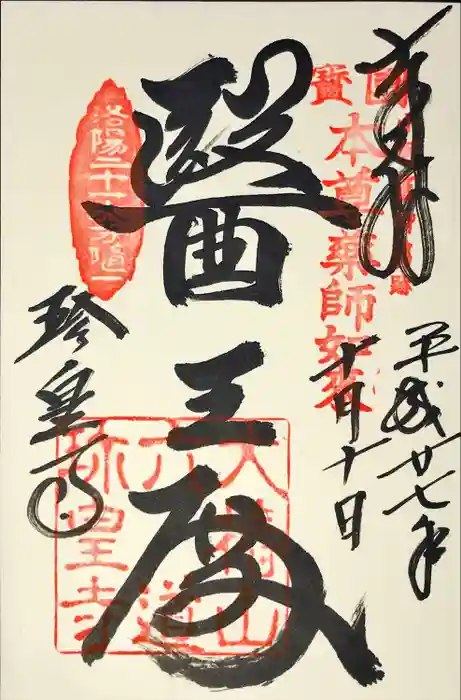 奉拝
平成廿七年
十月十日
國寶
本尊薬師如来
醫王殿
洛陽二十一番
珍皇寺
大椿山
六道
珍皇寺